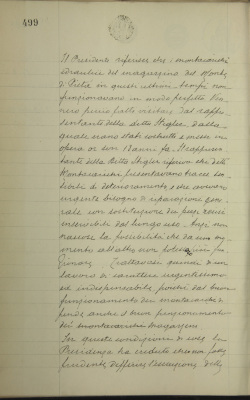 499
Il Presidente riferisce che i montacarichi
idraulici del magazzino del Monte
di Pietà in questi ultimi tempi non
funzionavano in modo perfetto
però fatto visitare dal rappre-
sentante della ditta Stigler dalla
quale erano stati costruiti e messi in
opera or son 18 anni fa. Il rappresen-
tante della ditta Stigler riferiva che detti
Montacarichi presentavano tracce sen-
sibili di deterioramento e che avevano
urgente bisogno di riparazione gene-
rale con sostituzione dei pezzi
inservibili dal lungo uso,
la possibilità che da un mo-
mento all'altro non potessero più fun-
zionare. Trattavasi quindi di un
lavoro di carattere urgentissimo
ed indispensabile poiché dal buon
funzionamento dei montacarichi di-
pende anche il buon funzionamento
dei magazzini.
In queste condizioni di cose la
Presidenza ha creduto che non fosse
prudente differire l'esecuzione delle